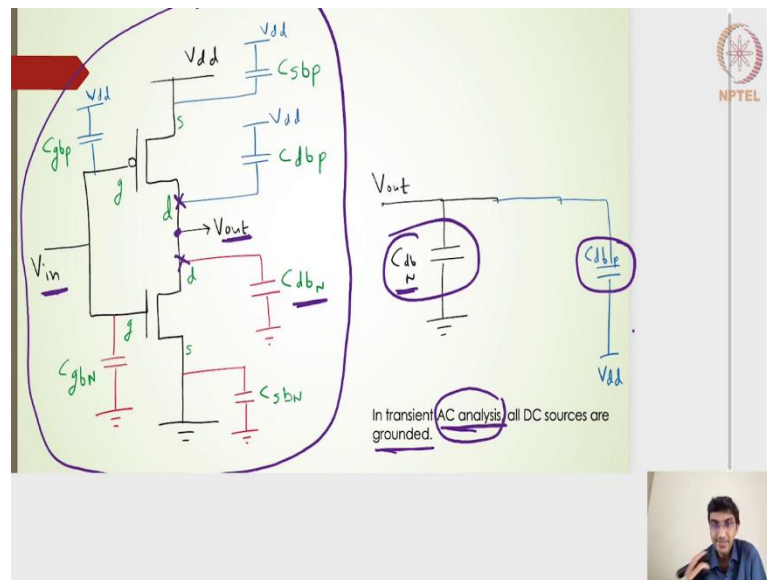 Vdd
Vdd
Csbp
Vdd
Cgbp
s
Vdd
Cdbp
g
d
Vout
Vin
d
CdbN
g
s
CgbN
CsbN
Vout
Cdb
N
Cdbp
Vdd
In transient AC analysis, all DC sources are
grounded.
NPTEL